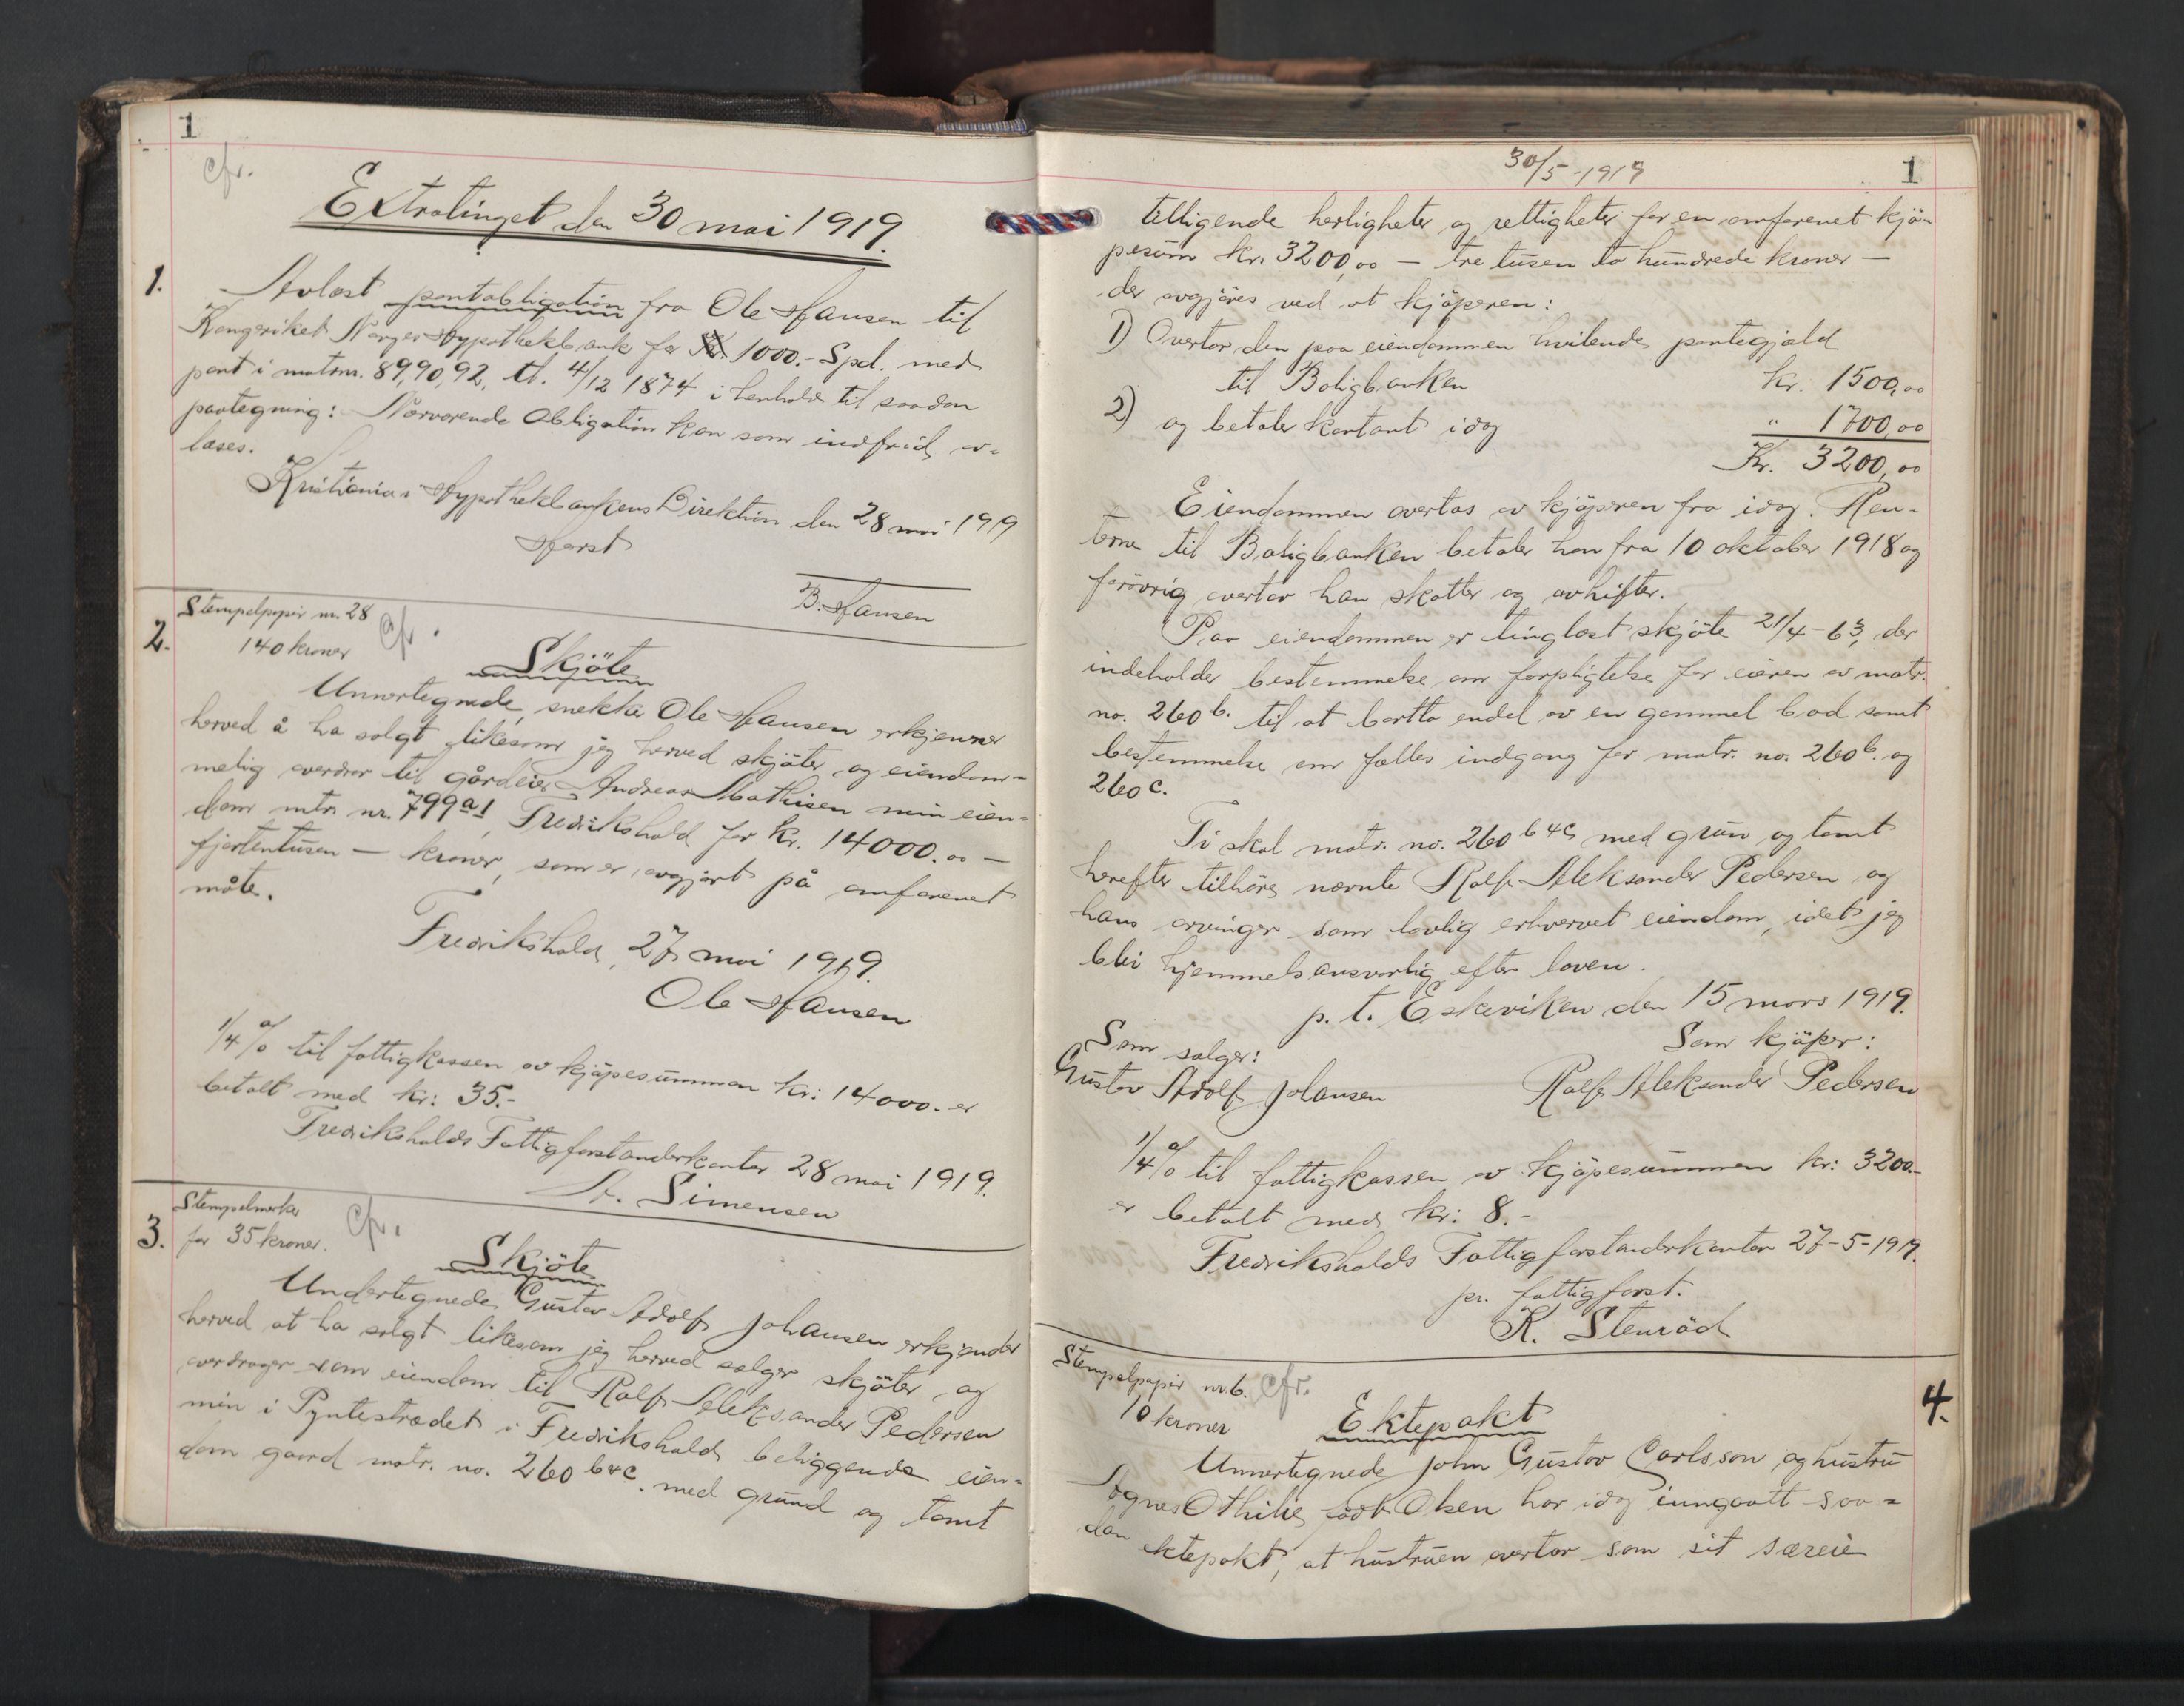 1
cfr.
Extratinget den 30 mai 1919.
1.
Avlæst pantobligation fra Ole Hansen til
Kongeriket Norges Hypothekbank for Kr. 1000.- Spd. med
pant i matrnr. 89, 90, 92, tl. 4/12 1874 i henhold til saadan
paategning: Nærværende Obligation kan som indfriid av-
læses.
Kristiania Hypothekbankens Direktion den 28 mai 1919
Horst
B. Hansen
2.
Stempelpapir nr. 28
140 kroner
cfr.
Skjöte
Unnertegnede, snekker Ole Hansen erkjenner
herved å ha solgt likesom jeg herved skjöter og eiendom-
melig overdrar til gårdeier Andreas Mathisen min eien-
dom mtr. nr. 799a1, Fredrikshald for kr. 14000.00 -
fjortentusen - kroner, som er avgjort på omforenet
måte.
Fredrikshald, 27 mai 1919.
Ole Hansen
1/4 % til fattigkassen av kjöpesummen kr: 14000.- er
betalt med kr: 35.-
Fredrikshalds Fattigforstanderkontor 28 mai 1919.
Simensen
3.
Stempelmerker
for 35 kroner.
cfr.
Skjöte
Undertegnede Gustav Adolf Johansen erkjender
herved at ha solgt likesom jeg herved sælger skjöter og
overdrager som eiendom til Ralf Aleksander Pedersen
min i Pyntestrædet i Fredrikshald beliggende eien-
dom gaard matr. no. 260 b&c. med grund og tomt
30/5-1919
1
tilligende herligheter og rettigheter for en omforenet kjö-
pesum kr. 3200,00 - tre tusen to hundrede kroner -
der avgjöres ved at kjöperen:
1) Overtar den paa eiendommen hvilende pantegjæld
til Boligbanken kr. 1500,00
2) og betaler kontant idag " 1700,00
Kr. 3200,00
Eiendommen overtas av kjöperen fra idag. Ren-
terne til Boligbanken betaler han fra 10 oktober 1918 og
forövrig overtar han skatter og avhifter.
Paa eiendommen er tinglæst skjöte 21/4-63, der
indeholder bestemmelse om forpligtelse for eieren av matr.
no. 260 b. til at bortta endel av en gammel bod samt
bestemmelse om fælles indgang for matr. no. 260 b. og
260 c.
Ti skal matr. no. 260 b&c med grun og tomt
herefter tilhöre nævnte Ralf Aleksander Pedersen og
hans arvinger som lovlig erhvervet eiendom, idet jeg
blir hjemmelsansvarlig efter loven.
p. t. Eskeviken den 15 mars 1919.
Som sælger: Som kjöper:
Gustav Adolf Johansen Ralf Aleksander Pedersen
1/4 % til fattigkassen av kjöpesummen kr: 3200.-
er betalt med kr: 8.-
Fredrikshalds Fattigforstanderkontor 27-5-1919.
pr. fattigforst.
K. Stenröd
4.
Stempelpapir nr. 6.
10 kroner
cfr.
Ektepakt
Unnertegnede John Gustav Carlsson og hustru
Agnes Othilie född Olsen har idag inngaatt saa-
dan ektepakt, at hustruen overtar som sit særeie